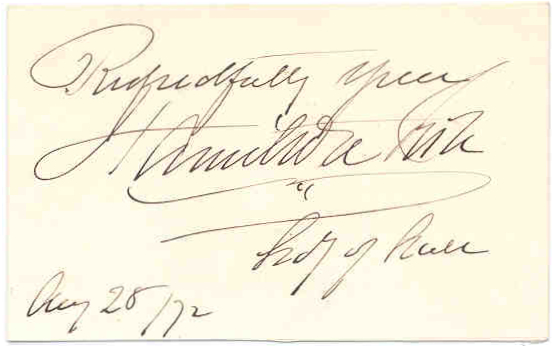 Respectfully yours
Hamilton Fish
Secy of State
Aug 28/72